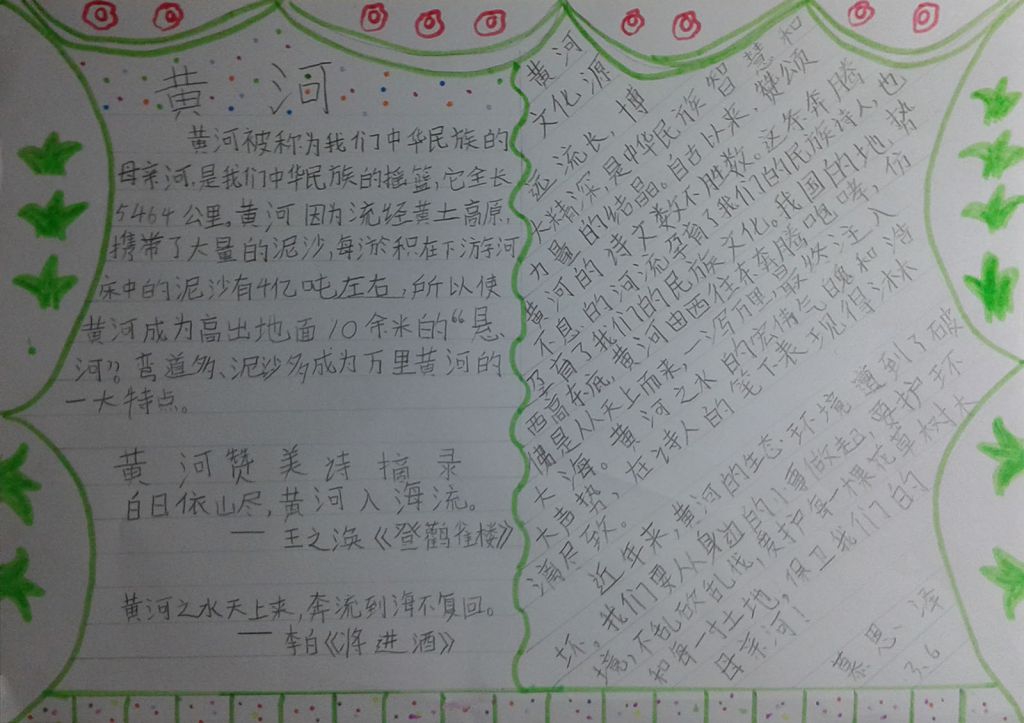 黄河
黄河被称为我们中华民族的
母亲河,是我们中华民族的摇篮,它全长
5464公里。黄河因为流经黄土高原,
携带了大量的泥沙,每淤积在下游河
床中的泥沙有4亿吨左右,所以使
黄河成为高出地面10余米的“悬
河”。弯道多、泥沙多成为万里黄河的
一大特点。
黄河赞美诗摘录
白日依山尽,黄河入海流。
——王之涣《登鹳雀楼》
黄河之水天上来,奔流到海不复回。
——李白《将进酒》
黄河
文化源
远流长,博
大精深,是中华民族智慧和
力量的结晶。自古以来,赞颂
黄河的诗文数不胜数。这条奔腾
不息的河流孕育了我们的民族诗人,也
孕育了我们的民族文化。我国的地势
西高东底,黄河由西往东奔腾咆哮,仿
佛是从天上而来,一泻万里,最终注入
大海。黄河之水的宏伟气魄和浩
大声势,在诗人的笔下表现得淋淋
滴尽致。
近年来,黄河的生态环境遭到了破
坏。我们要从身边的小事做起,要护环
境,不乱砍乱伐,爱护每一棵花草树木
和每一寸土地,保卫我们的
母亲河!
慕思泽
3.6